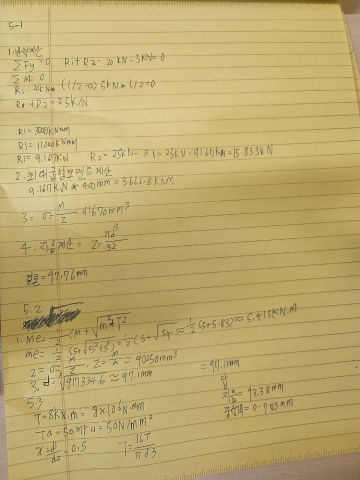 5-1
1. 반력계산
ΣFy=0 R1+R2-20kN-5kN=0
ΣM=0
R1 - 20kN* (1/2-a) 5kN* 1/2=0
R1+R2=25kN
R1=
R1=11000kNmm
R1=9.167kN R2=25kN-R1=25kN-9.167kN=15.833kN
2. 최대굽힘모멘트계산
9.167kN*400mm=3666.8kNmm
3= σ=M/Z=91670mm³
4. 지름계산= Z=πd³/32
결론=97.76mm
5.2
1. Me=1/2(M+√M²+T²)
Me=1/2(5+√5²+3²)=1/2(5+√34≈1/2(5+5.83)≈5.415kN.m
2=σ=M/Z, Z=M/σ=90250mm³
3. d=√917334.6≈97.1mm =97.1mm
5.3
T=8kN.m=8×10⁶N.mm
Ta=50MPa=50N/mm²
x=d1/d2=0.5 T=16T/πd3
93.38mm
=0.783mm